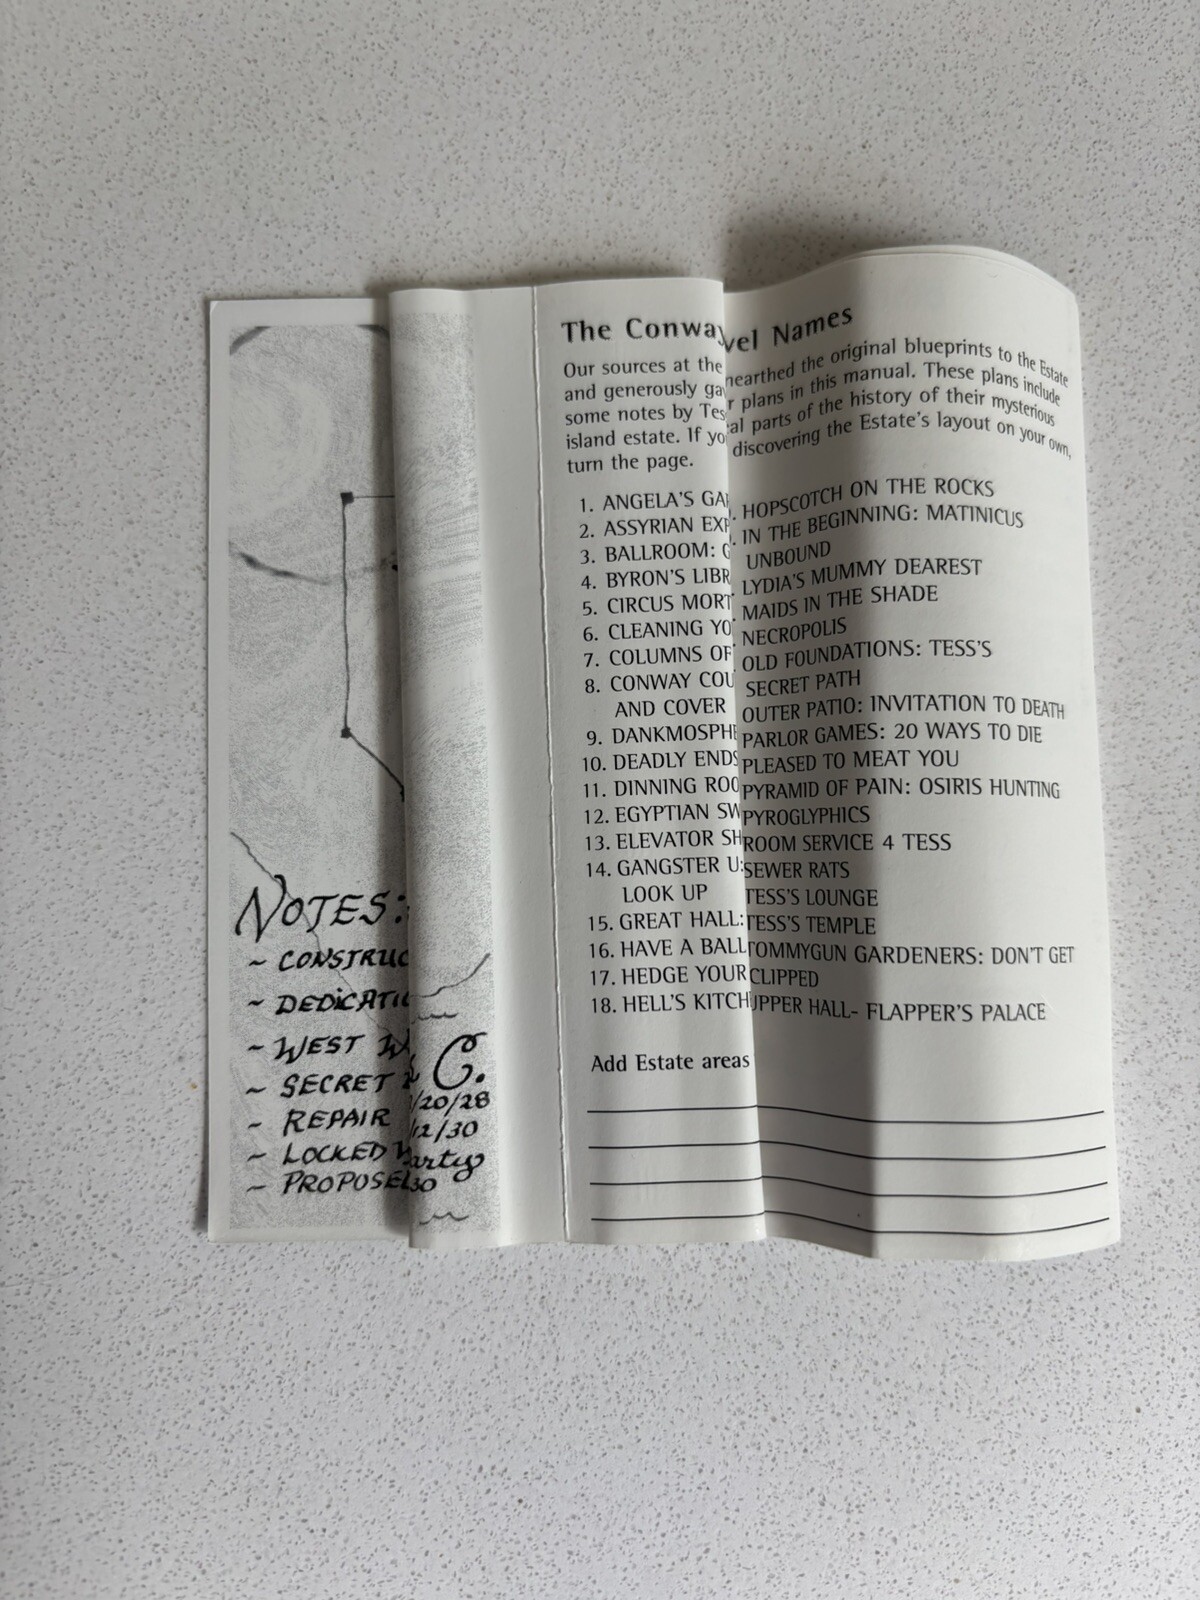 NOTES:
~ CONSTRUC
~ DEDICATI
~ WEST W
~ SECRET
~ REPAIR
~ LOCKED
~ PROPOSE
C.
/20/28
/12/30
arty
30
The Conway
vel Names
Our sources at the
nearthed the original blueprints to the Estate
and generously ga
r plans in this manual. These plans include
some notes by Tes
al parts of the history of their mysterious
island estate. If yo
discovering the Estate's layout on your own,
turn the page.
1. ANGELA'S GA
2. ASSYRIAN EXP
3. BALLROOM: G
4. BYRON'S LIBR
5. CIRCUS MORT
6. CLEANING YO
7. COLUMNS OF
8. CONWAY COU
AND COVER
9. DANKMOSPHE
10. DEADLY ENDS
11. DINNING ROO
12. EGYPTIAN SW
13. ELEVATOR SH
14. GANGSTER U
LOOK UP
15. GREAT HALL:
16. HAVE A BALL
17. HEDGE YOUR
18. HELL'S KITCH
HOPSCOTCH ON THE ROCKS
IN THE BEGINNING: MATINICUS
UNBOUND
LYDIA'S MUMMY DEAREST
MAIDS IN THE SHADE
NECROPOLIS
OLD FOUNDATIONS: TESS'S
SECRET PATH
OUTER PATIO: INVITATION TO DEATH
PARLOR GAMES: 20 WAYS TO DIE
PLEASED TO MEAT YOU
PYRAMID OF PAIN: OSIRIS HUNTING
PYROGLYPHICS
ROOM SERVICE 4 TESS
SEWER RATS
TESS'S LOUNGE
TESS'S TEMPLE
TOMMYGUN GARDENERS: DON'T GET
CLIPPED
UPPER HALL- FLAPPER'S PALACE
Add Estate areas